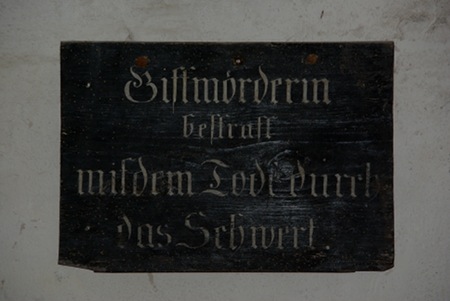 Giftmörderin
bestraft
mit dem Tode durch
das Schwert.